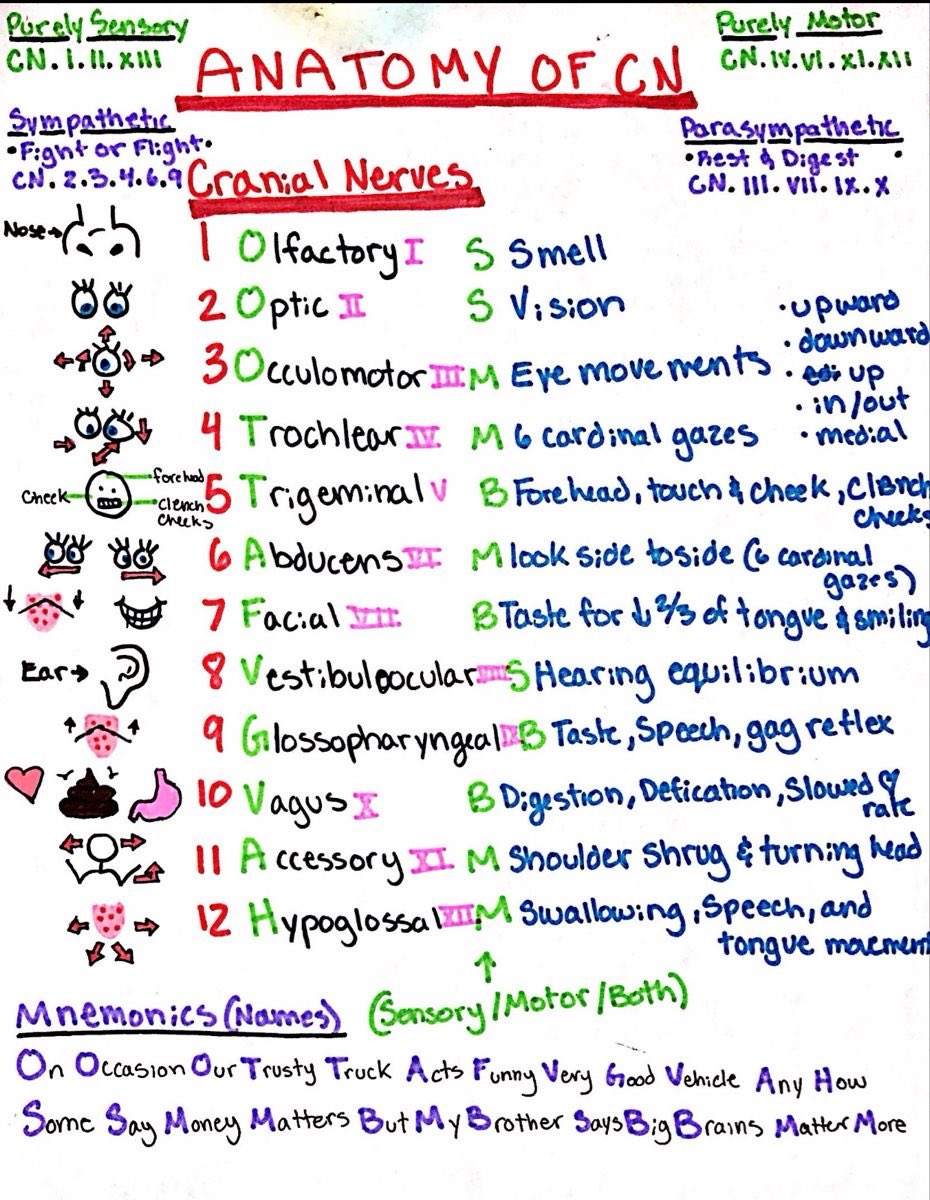 Purely Sensory
CN. I. II. XIII
Purely Motor
CN. IV. VI. XI. XII
ANATOMY OF CN
Sympathetic
•Fight or Flight•
CN. 2.3.4.6.9
Parasympathetic
•Rest & Digest •
CN. III. VII. IX. X
Cranial Nerves
Nose→
1 Olfactory I S Smell
2 Optic II S Vision
3 Occulomotor III M Eye movements
•upward
•downward
• up
•in/out
•medial
4 Trochlear IV M 6 cardinal gazes
forehead
Cheek
Clench cheeks
5 Trigeminal V B Forehead, touch & cheek, Clench cheeks
6 Abducens VI M look side to side (6 cardinal gazes)
7 Facial VII B Taste for ↓ 2/3 of tongue & smiling
Ear→
8 Vestibuloocular IIII S Hearing equilibrium
9 Glossopharyngeal IX B Taste, Speech, gag reflex
10 Vagus X B Digestion, Defication, Slowed ♡ rate
11 Accessory XI M Shoulder Shrug & turning head
12 Hypoglossal XII M Swallowing, Speech, and
tongue
(Sensory/Motor/Both)
Mnemonics (Names)
On Occasion Our Trusty Truck Acts Funny Very Good Vehicle Any How
Some Say Money Matters But My Brother Says Big Brains Matter More